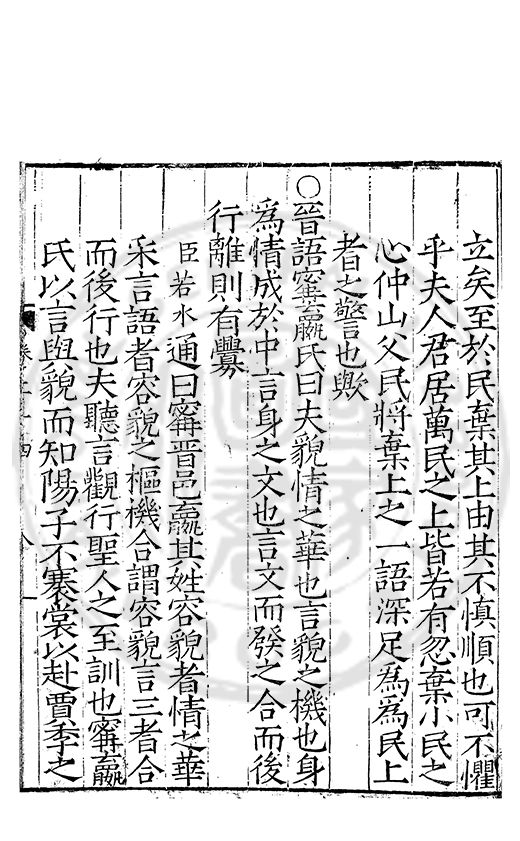 立矣至於民棄其上由其不慎順也可不懼
乎夫人君居萬民之上皆若有忽棄小民之
心仲山父民將棄上之一語深足為為民上
者之警也歟
○晉語甯嬴氏曰夫貌情之華也言貌之機也身
為情成於中言身之文也言文而發之合而後
行離則有釁
臣若水通曰甯晉邑嬴其姓容貌者情之華
采言語者容貌之樞機合謂容貌言三者合
而後行也夫聽言觀行聖人之至訓也甯嬴
氏以言與貌而知陽子不褰裳以赴賈季之